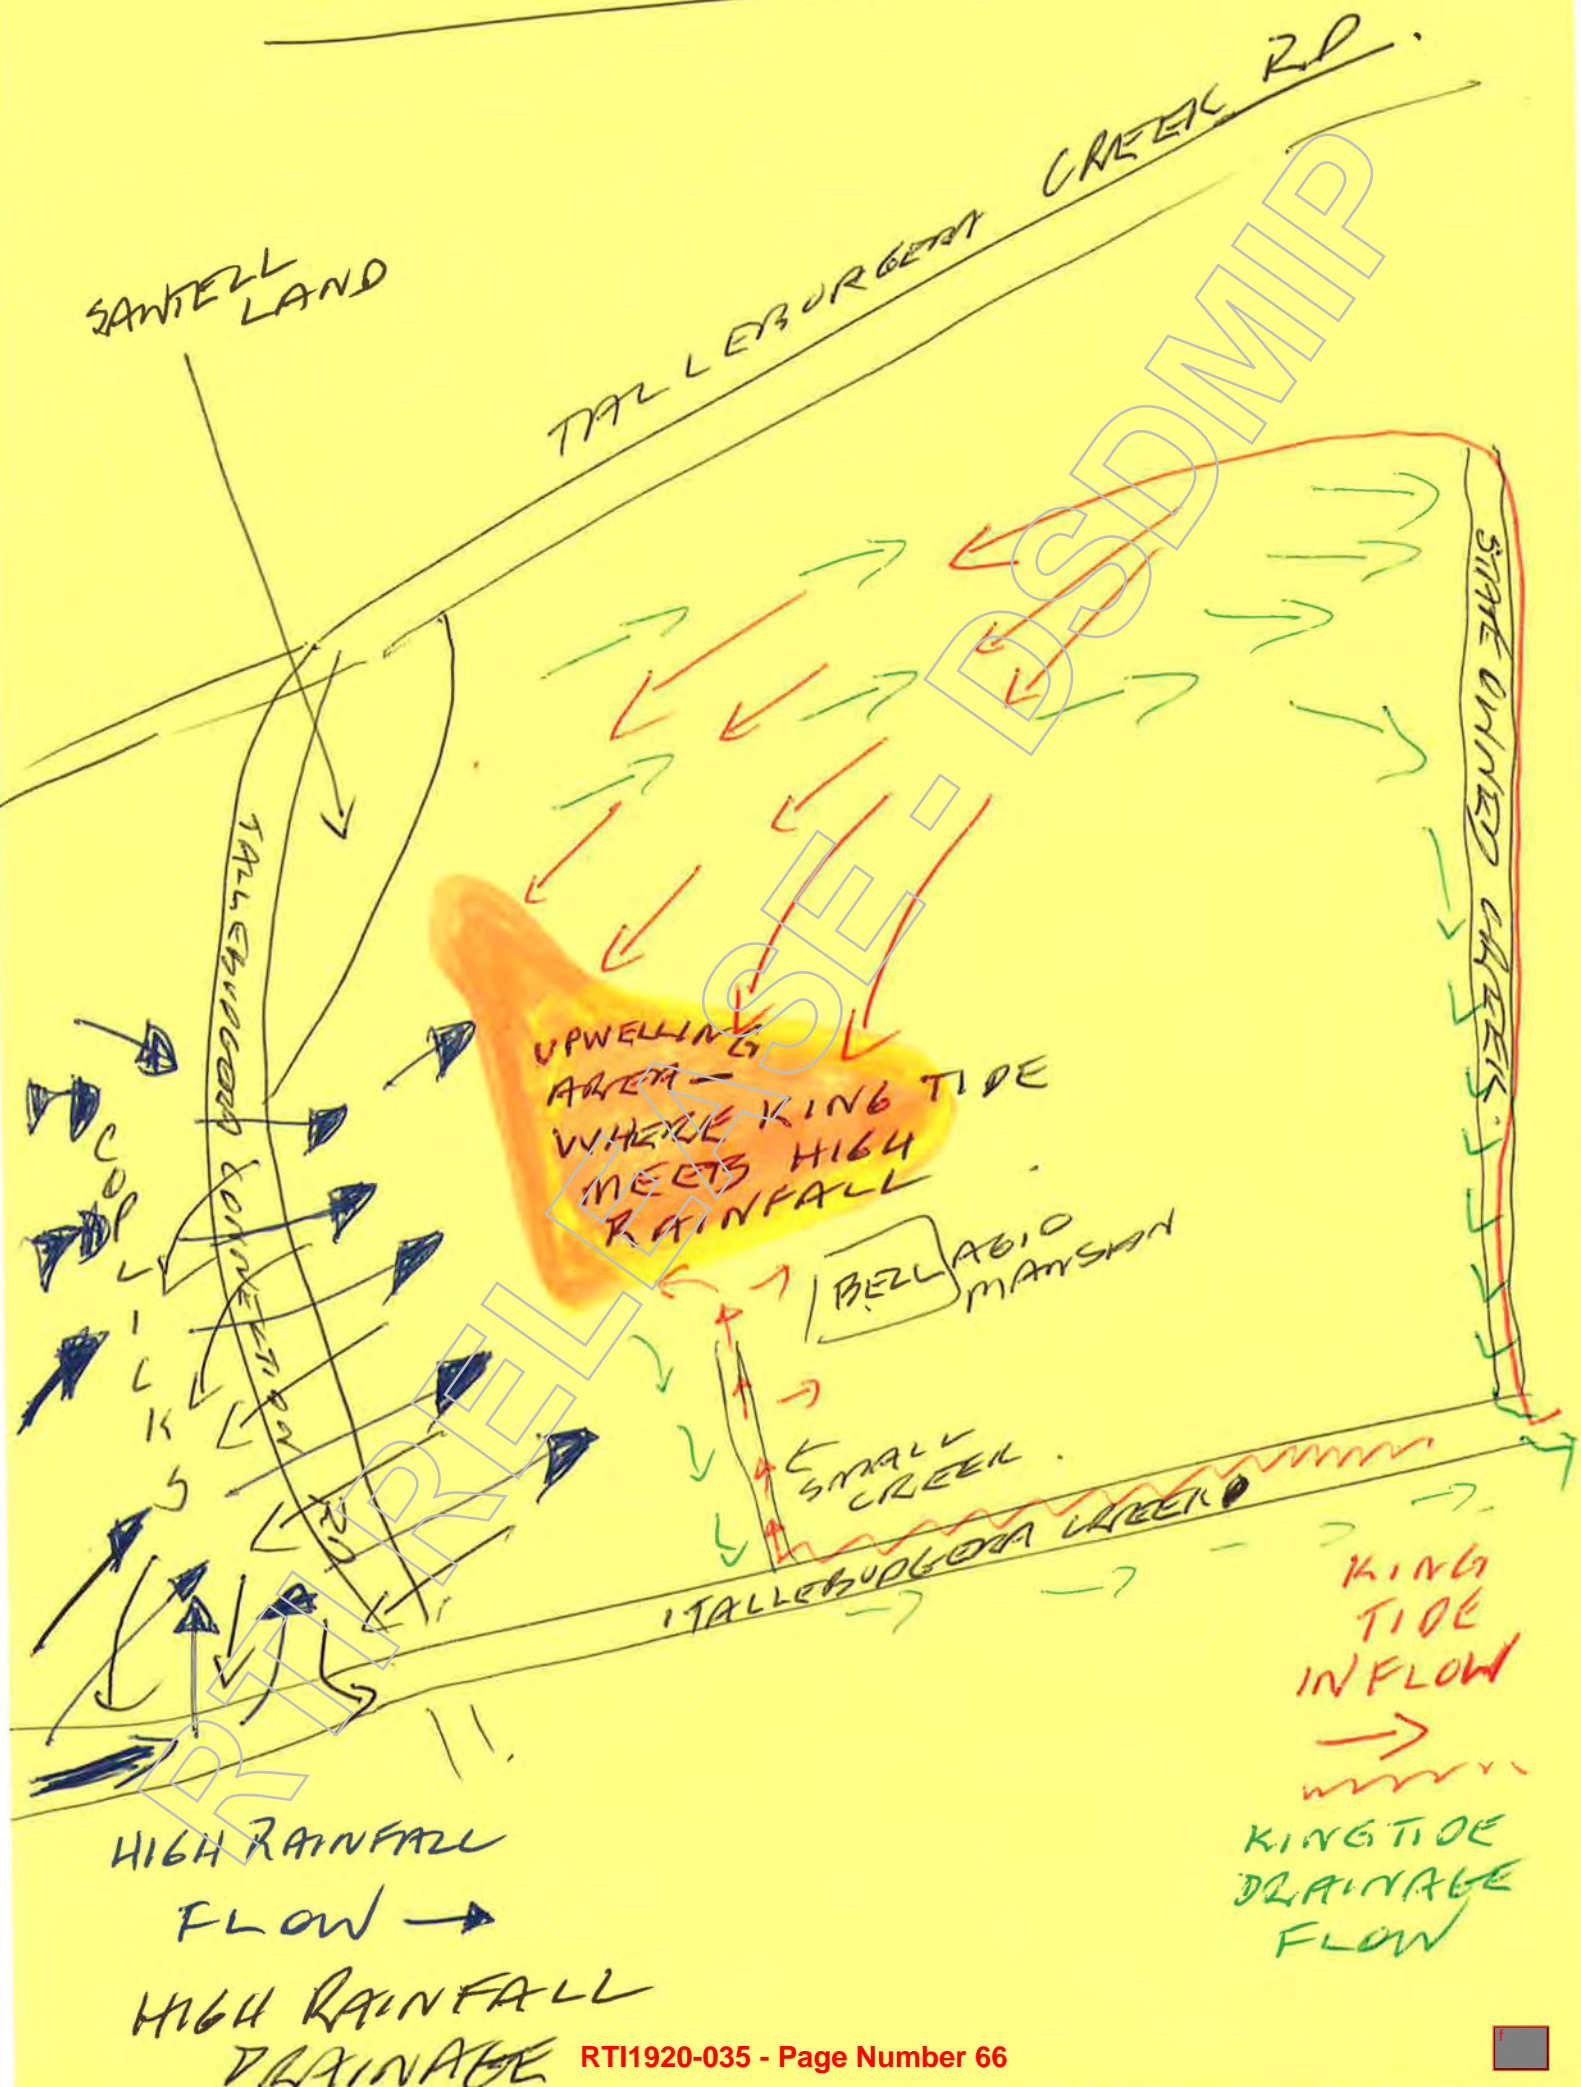 TALLEBURGERA CREEK RD.
SANTELL
LAND
STATE OWNED CREEK
TALLEBUDGERA CONNECTION RD
UPWELLING
AREA —
WHERE KING TIDE
MEETS HIGH
RAINFALL
BELLAGIO
MANSION
COPLICKS
SMALL
CREEK.
TALLEBUDGERA CREEK
KING
TIDE
INFLOW
KING TIDE
DRAINAGE
FLOW
HIGH RAINFALL
FLOW
HIGH RAINFALL
DRAINAGE
RTI RELEASE - DSDMIP
RTI1920-035 - Page Number 66
f